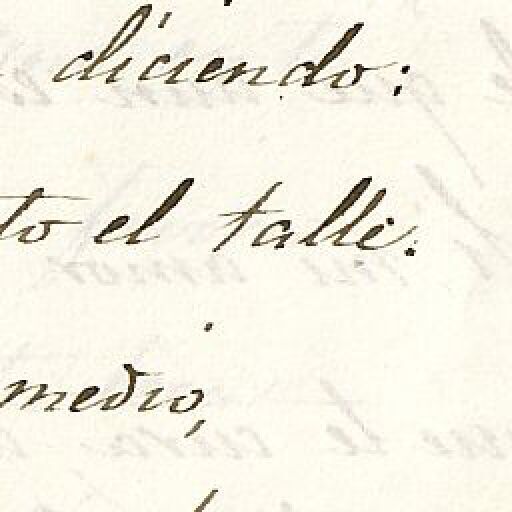 diciendo:
to el talle.
medio,